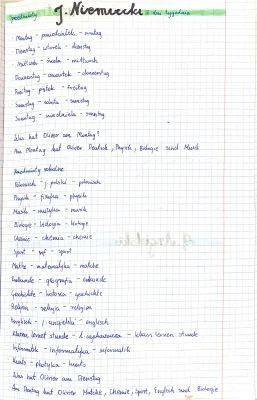 przedmioty J. Niemiecki : dni tygodnia
Montag - poniedziałek - montag
Dienstag - wtorek - dienstag
Mittwoch - środa - mittwoch
Donnerstag - czwartek - donnerstag
Freitag - piątek - freitag
Samstag - sobota - samstag
Sonntag - niedziela - sonntag
Was hat Oliver am Montag?
Am Montag hat Oliver Deutsch, Physik, Biologie und Musik
Przedmioty szkolne
- j. polski - polonisch
Physik - fizyka - physik
Musik - muzyka - musik
Biologie - biologia - biologie
Chemie - chemia - chemie
Sport - wf - sport
Mathe - matematyka - mathe
Erdkunde - geografia - erdkunde
Geschichte - historia - geschichte
Religion - religia - religion
Englisch - j. angielski - englisch
- l. wychowawcza -
Informatik - informatyka - informatik
Kunst - plastyka - kunst
Was hat Oliver am Dienstag
Am Dienstag hat Oliver Mathe, Chemie, Sport, Englisch und Biologie